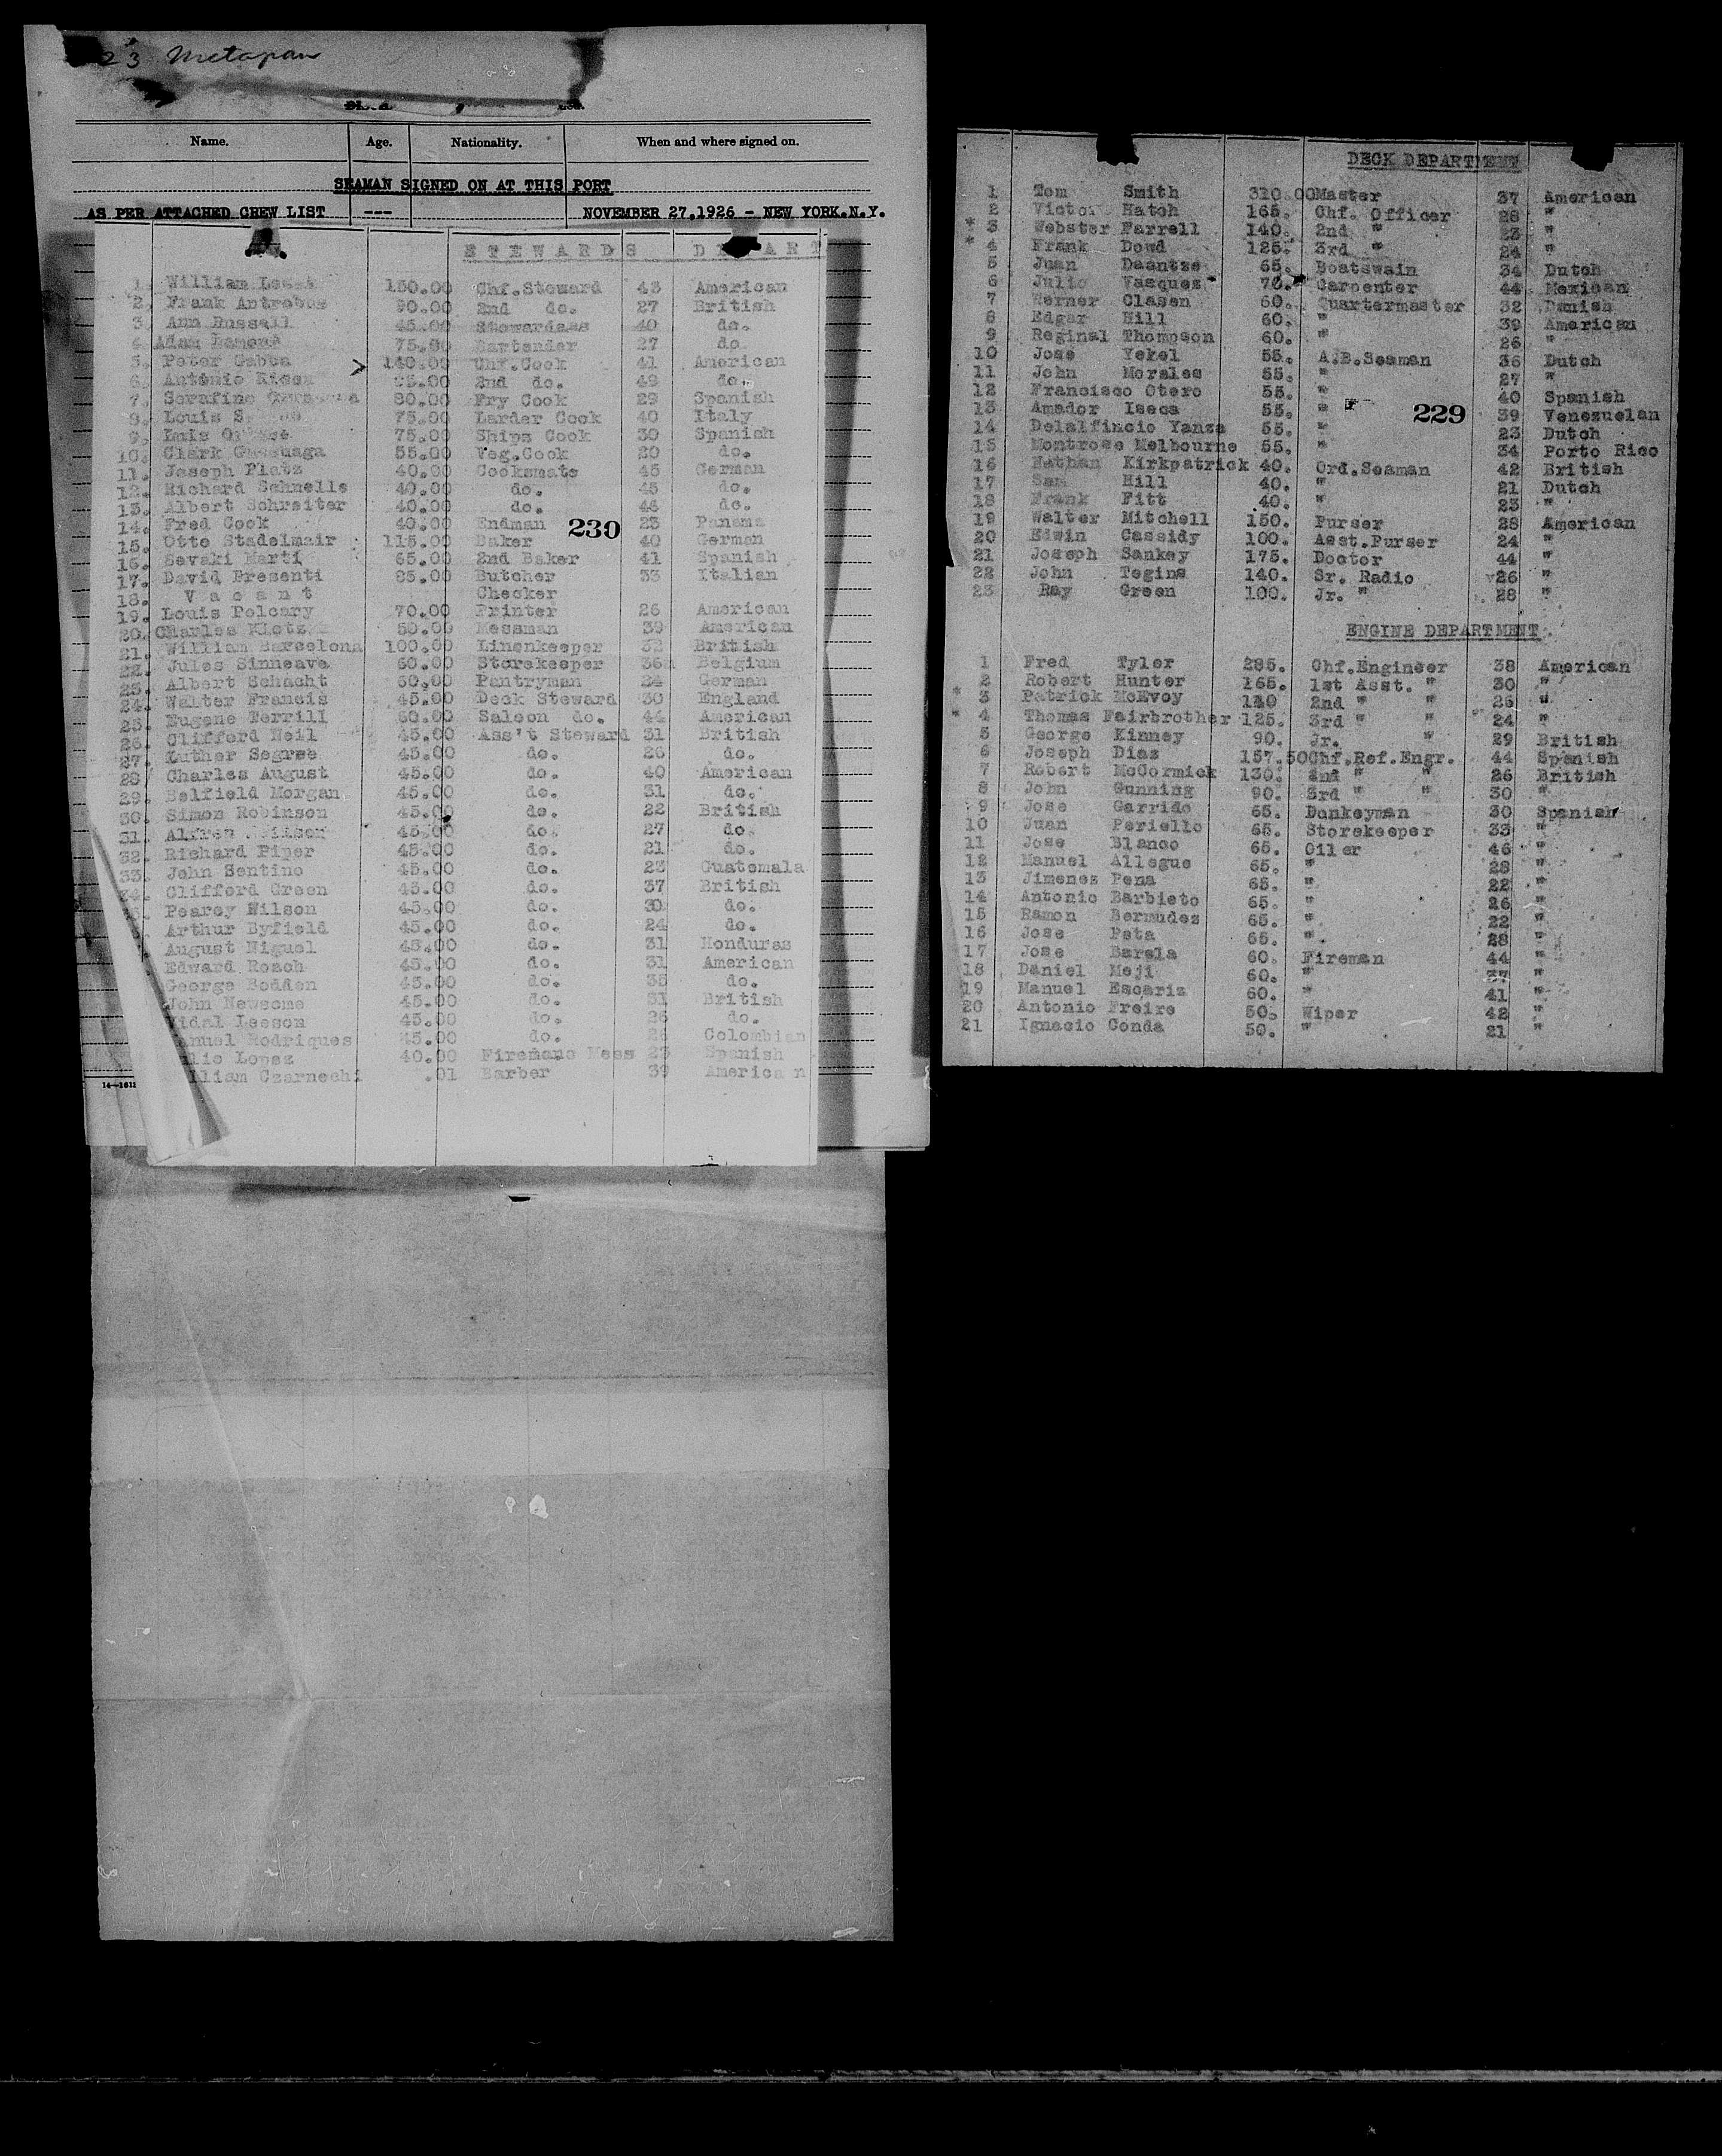 23 Metapan
Name. Age. Nationality. When and where signed on.
SEAMAN SIGNED ON AT THIS PORT
AS PER ATTACHED CREW LIST --- NOVEMBER 27,1926 - NEW YORK.N.Y.
STEWARDS DEPART
1. William 150.00 Chf.Steward 43 American
2. Frank Antrobus 90.00 2nd do. 27 British
3. Ann Russell 45.00 Stewardess 40 do.
4. Adam Lamont 75.00 Bartender 27 do.
5. Peter Gabba 140.00 Chf.Cook 41 American
6. Antonio 95.00 2nd do. 49 do.
7. Serafino 80.00 Fry Cook 29 Spanish
8. Louis 75.00 Larder Cook 40 Italy
9. Luis 75.00 Ships Cook 30 Spanish
10. Clark 55.00 Veg.Cook 20 do.
11. Joseph Platz 40.00 Cooksmate 45 German
12. Richard Schnells 40.00 do. 45 do.
13. Albert Schreiter 40.00 do. 44 do.
14. Fred Cook 40.00 Endman 23 Panama
230
15. Otto Stadelmair 115.00 Baker 40 German
16. Sevaki Marti 65.00 2nd Baker 41 Spanish
17. David Presenti 85.00 Butcher 33 Italian
18. Vacant Checker
19. Louis Polcary 70.00 Printer 26 American
20. Charles 50.00 Messman 39 American
21. William Barcelona 100.00 Linenkeeper 32 British
22. Jules Sinneave 60.00 Storekeeper 36 Belgium
23. Albert Schacht 60.00 Pantryman 34 German
24. Walter Francis 45.00 Deck Steward 30 England
25. Eugene Terrill 60.00 Saloon do. 44 American
26. Clifford Neil 45.00 Ass't Steward 31 British
27. Luther Segree 45.00 do. 26 do.
28. Charles August 45.00 do. 40 American
29. Belfield Morgan 45.00 do. 31 do.
30. Simon Robinson 45.00 do. 22 British
31. 45.00 do. 27 do.
32. Richard Piper 45.00 do. 21 do.
33. John Sentino 45.00 do. 23 Guatemala
34. Clifford Green 45.00 do. 37 British
Pearcy Wilson 45.00 do. 30 do.
Arthur Byfield 45.00 do. 24 do.
August Niguel 45.00 do. 31 Honduras
Edward Roach 45.00 do. 31 American
George Bodden 45.00 do. 35 do.
John Newsome 45.00 do. 31 British
Vidal Leeson 45.00 do. 26 do.
Rodriques 45.00 do. 28 Colombian
Lopez 40.00 Firemans Mess 23 Spanish
Czarnechi .01 Barber 39 American
DECK DEPARTMENT
1 Tom Smith 310.00 Master 37 American
2 Victor Hatch 165. Chf. Officer 28 "
* 3 Webster Farrell 140. 2nd " 23 "
* 4 Frank Dowd 125. 3rd " 24 "
5 Juan Daantze 65. Boatswain 34 Dutch
6 Julio Vasquez 70. Carpenter 44 Mexican
7 Werner Clasen 60. Quartermaster 32 Danish
8 Edgar Hill 60. " 39 American
9 Reginal Thompson 60. " 26 "
10 Jose Yekel 55. A.B.Seaman 36 Dutch
11 John Morales 55. " 27 "
12 Francisco Otero 55. " 40 Spanish
13 Amador Iseca 55. " 39 Venezuelan
229
14 Delalfincio Yanza 55. " 23 Dutch
15 Montrose Melbourne 55. " 34 Porto Rico
16 Nathan Kirkpatrick 40. Ord.Seaman 42 British
17 Sam Hill 40. " 21 Dutch
18 Frank Fitt 40. " 23 "
19 Walter Mitchell 150. Purser 28 American
20 Edwin Cassidy 100. Asst.Purser 24 "
21 Joseph Sankey 175. Doctor 44 "
22 John Tegins 140. Sr. Radio 26 "
23 Ray Green 100. Jr. " 28 "
ENGINE DEPARTMENT
1 Fred Tyler 285. Chf.Engineer 38 American
2 Robert Hunter 165. 1st Asst. " 30 "
* 3 Patrick McEvoy 140 2nd " " 26 "
* 4 Thomas Fairbrother 125. 3rd " " 24 "
5 George Kinney 90. Jr. " 29 British
6 Joseph Diaz 157.50 Chf.Ref.Engr. 44 Spanish
7 Robert McCormick 130. 2nd " " 26 British
8 John Gunning 90. 3rd " " 30 "
9 Jose Garrido 65. Donkeyman 30 Spanish
10 Juan Periello 65. Storekeeper 33 "
11 Jose Blanco 65. Oiler 46 "
12 Manuel Allegue 65. " 28 "
13 Jimenez Pena 65. " 22 "
14 Antonio Barbieto 65. " 26 "
15 Ramon Bermudez 65. " 22 "
16 Jose Pata 65. " 28 "
17 Jose Barela 60. Fireman 44 "
18 Daniel Meji 60. " 37 "
19 Manuel Escariz 60. " 41 "
20 Antonio Freire 50. Wiper 42 "
21 Ignacio Conda 50. " 21 "